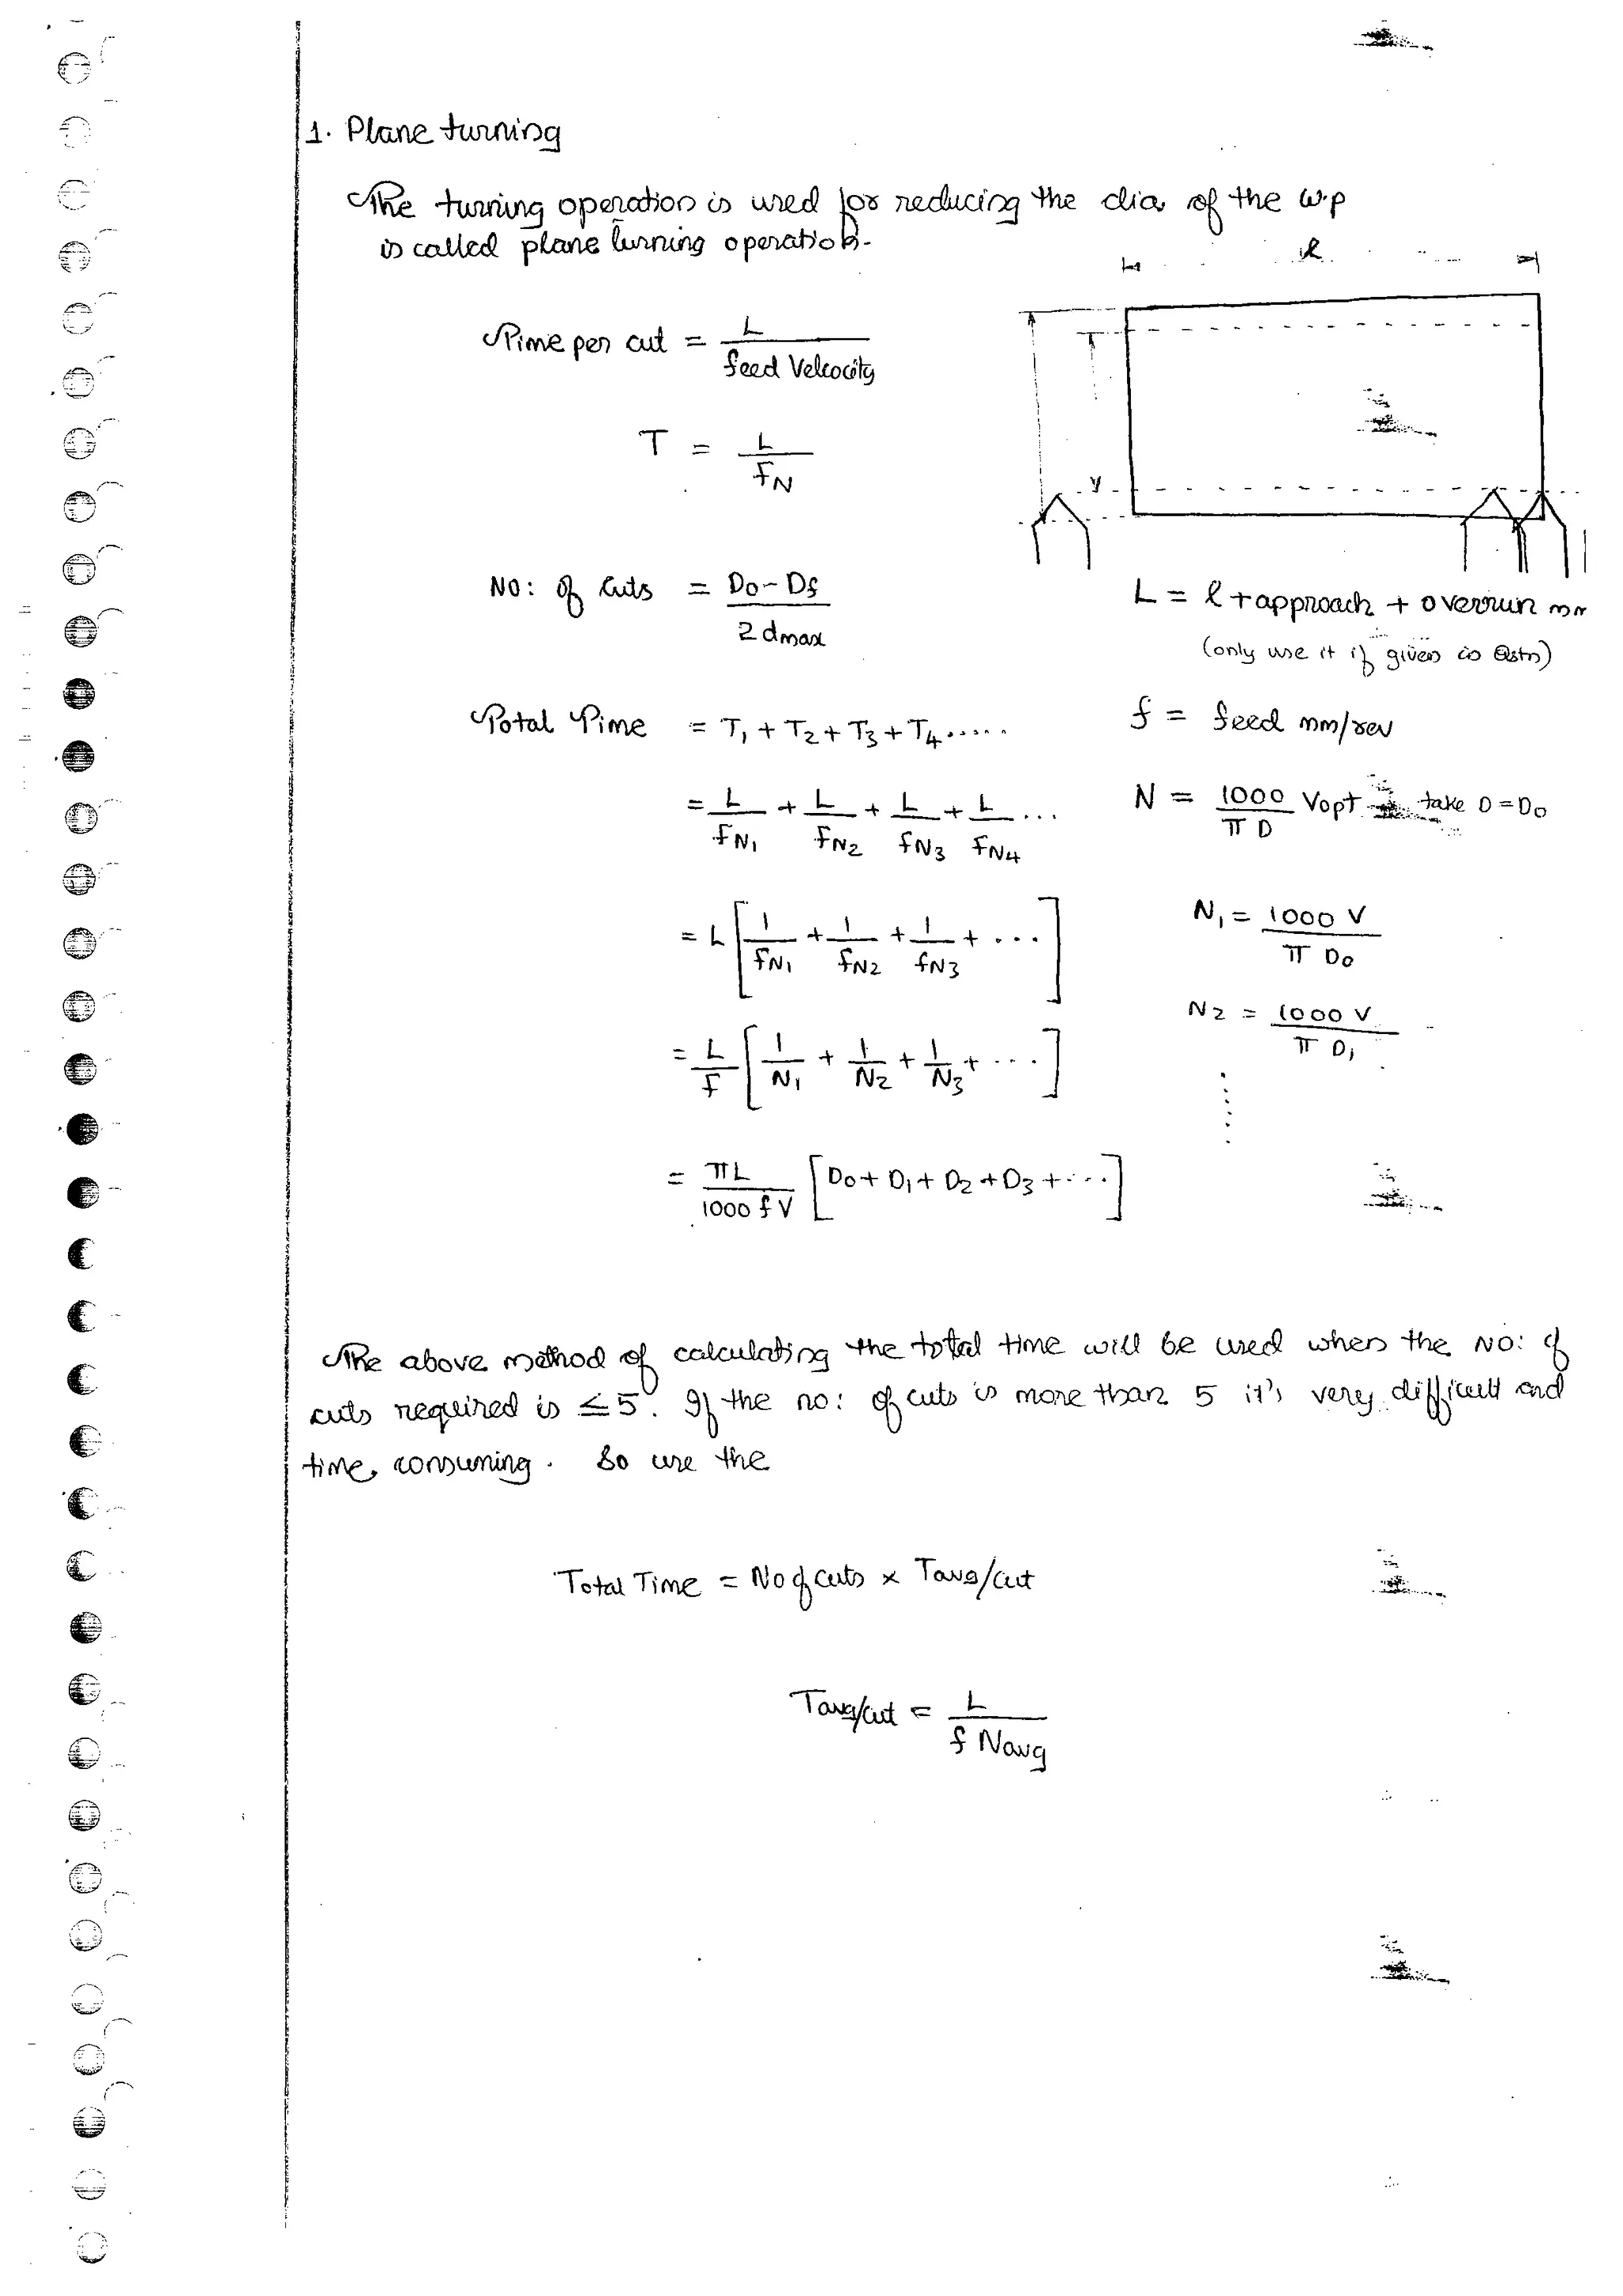 1. Plane turning
The turning operation is used for reducing the dia of the w.p
is called plane turning operation.
l
Time per cut = L / feed Velocity
T = L / fN
y
No: of cuts = Do - Df / 2 dmax
L = l + approach + overrun mm
(only use it if given in Qstn)
Total Time = T1 + T2 + T3 + T4 .....
f = feed mm/rev
= L / fN1 + L / fN2 + L / fN3 + L / fN4 ...
N = 1000 / π D Vopt take D = Do
= L [ 1 / fN1 + 1 / fN2 + 1 / fN3 + ... ]
N1 = 1000 V / π Do
= L / f [ 1 / N1 + 1 / N2 + 1 / N3 + ... ]
N2 = 1000 V / π D1
= πL / 1000 f V [ Do + D1 + D2 + D3 + ... ]
The above method of calculating the total time will be used when the No: of
cuts required is ≤ 5. If the no: of cuts is more than 5 it's very difficult and
time consuming. So use the
Total Time = No of cuts × Tavg/cut
Tavg/cut = L / f Navg